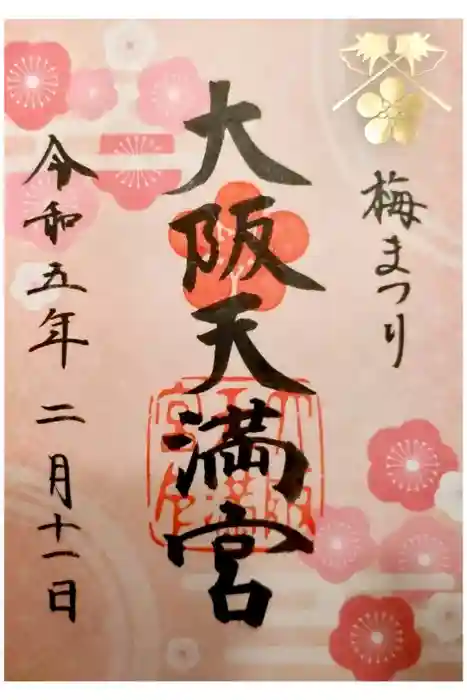 梅まつり
大阪天満宮
令和五年二月十一日